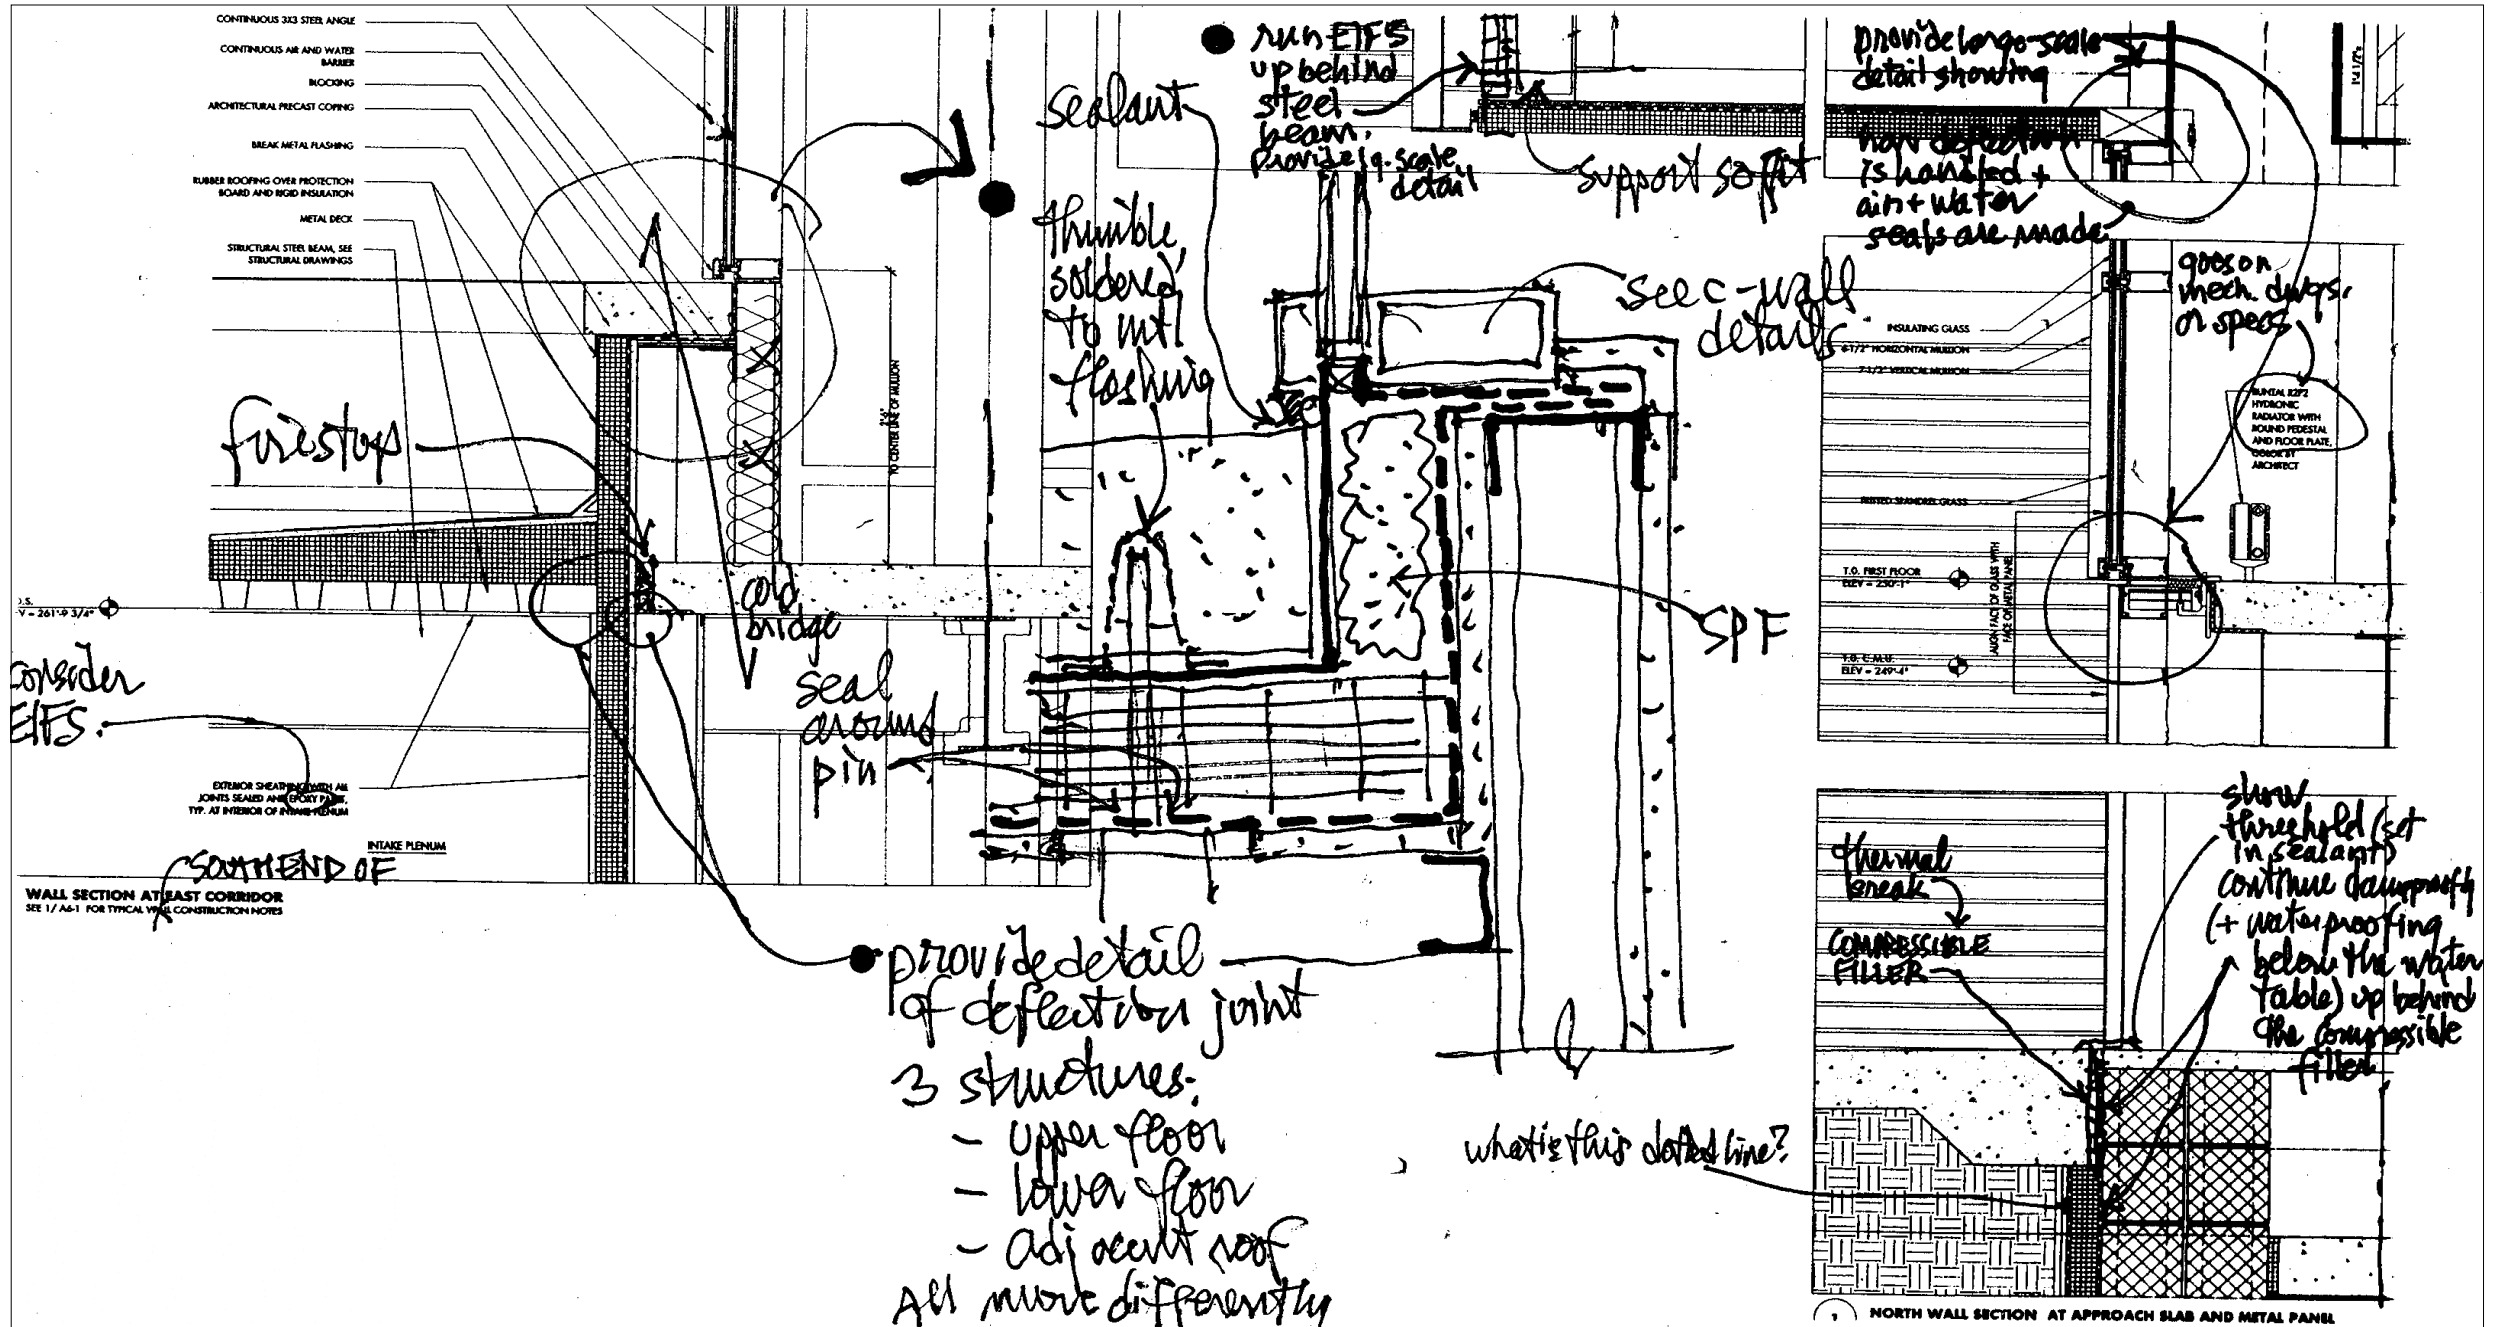 CONTINUOUS 3X3 STEEL ANGLE
CONTINUOUS AIR AND WATER
BARRIER
BLOCKING
ARCHITECTURAL PRECAST COPING
BREAK METAL FLASHING
RUBBER ROOFING OVER PROTECTION
BOARD AND RIGID INSULATION
METAL DECK
STRUCTURAL STEEL BEAM, SEE
STRUCTURAL DRAWINGS
firestop
2'-6"
TO CENTER LINE OF MULLION
V = 261'-9 3/4"
consider
EIFS.
cold
bridge
seal
around
pin
EXTERIOR SHEATHING WITH ALL
JOINTS SEALED AND EPOXY PAINT,
TYP. AT INTERIOR OF INTAKE PLENUM
INTAKE PLENUM
SOUTH END OF
WALL SECTION AT EAST CORRIDOR
SEE 1/ A6-1 FOR TYPICAL WALL CONSTRUCTION NOTES
run EIFS
up behind
steel
beam.
provide lg-scale
detail
sealant
support soffit
thimble,
soldered
to mtl
flashing
see c-wall
details
SPF
provide detail
of deflection joint
3 structures:
- upper floor
- lower floor
- adjacent roof
All move differently
provide large-scale
detail showing
how deflection
is handled +
air + water
seals are made
1'-4 1/2"
goes on
mech. dwgs.
or specs
INSULATING GLASS
4-1/2" HORIZONTAL MULLION
7-1/2" VERTICAL MULLION
RUNTAL R2F2
HYDRONIC
RADIATOR WITH
ROUND PEDESTAL
AND FLOOR PLATE,
COLOR BY
ARCHITECT
FRITTED SPANDREL GLASS
ALIGN FACE OF GLASS WITH
FACE OF METAL PANEL
T.O. FIRST FLOOR
ELEV = 250'-1"
T.O. C.M.U.
ELEV = 249'-4"
show
threshold (set
in sealant)
continue dampproof'g
(+ waterproofing
below the water
table) up behind
the compressible
filler
thermal
break
COMPRESSIBLE
FILLER
what is this dotted line?
NORTH WALL SECTION AT APPROACH SLAB AND METAL PANEL